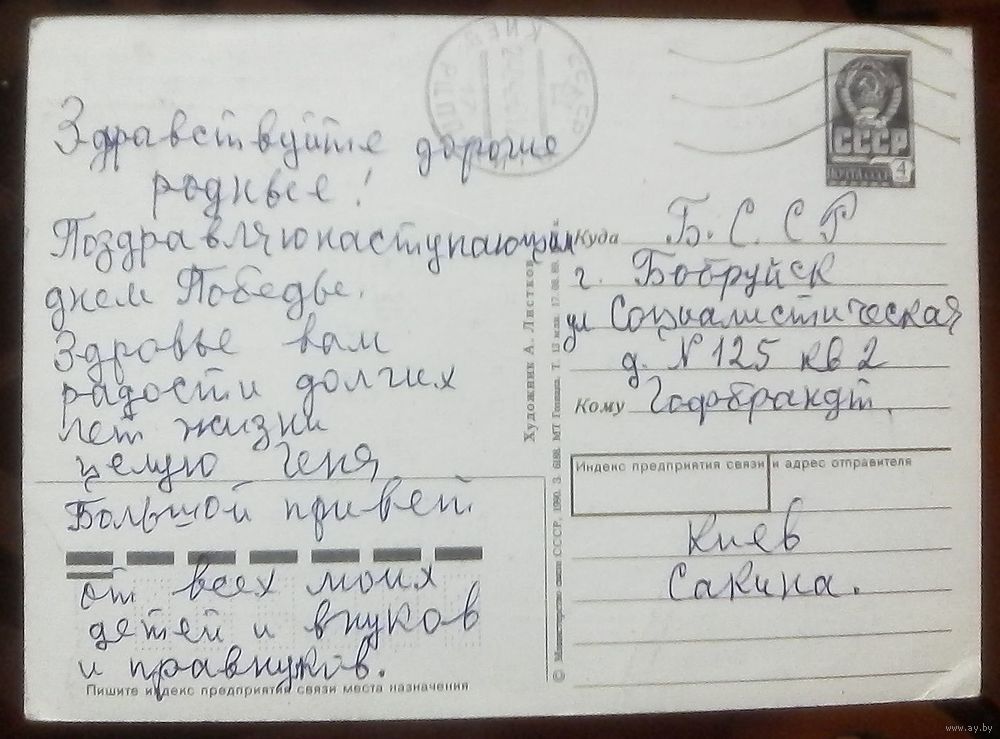 Здравствуйте дорогие
родные!
Поздравляю наступающим
днем Победы.
Здоровье вам
радости долгих
лет жизни
целую Геня
Большой привет
от всех моих
детей и внуков
и правнуков.
Пишите индекс предприятия связи места назначения
КИЕВ
СССР
4
Куда Б. С. С Р
г. Бобруйск
ул Социалистическая
д. N 125 кв 2
Кому Гофбрандт.
Индекс предприятия связи и адрес отправителя
Киев
Сакина.
Художник А. Листков
© Министерство связи СССР, 1990. З. 6188. МТ Гознака.
www.ay.by